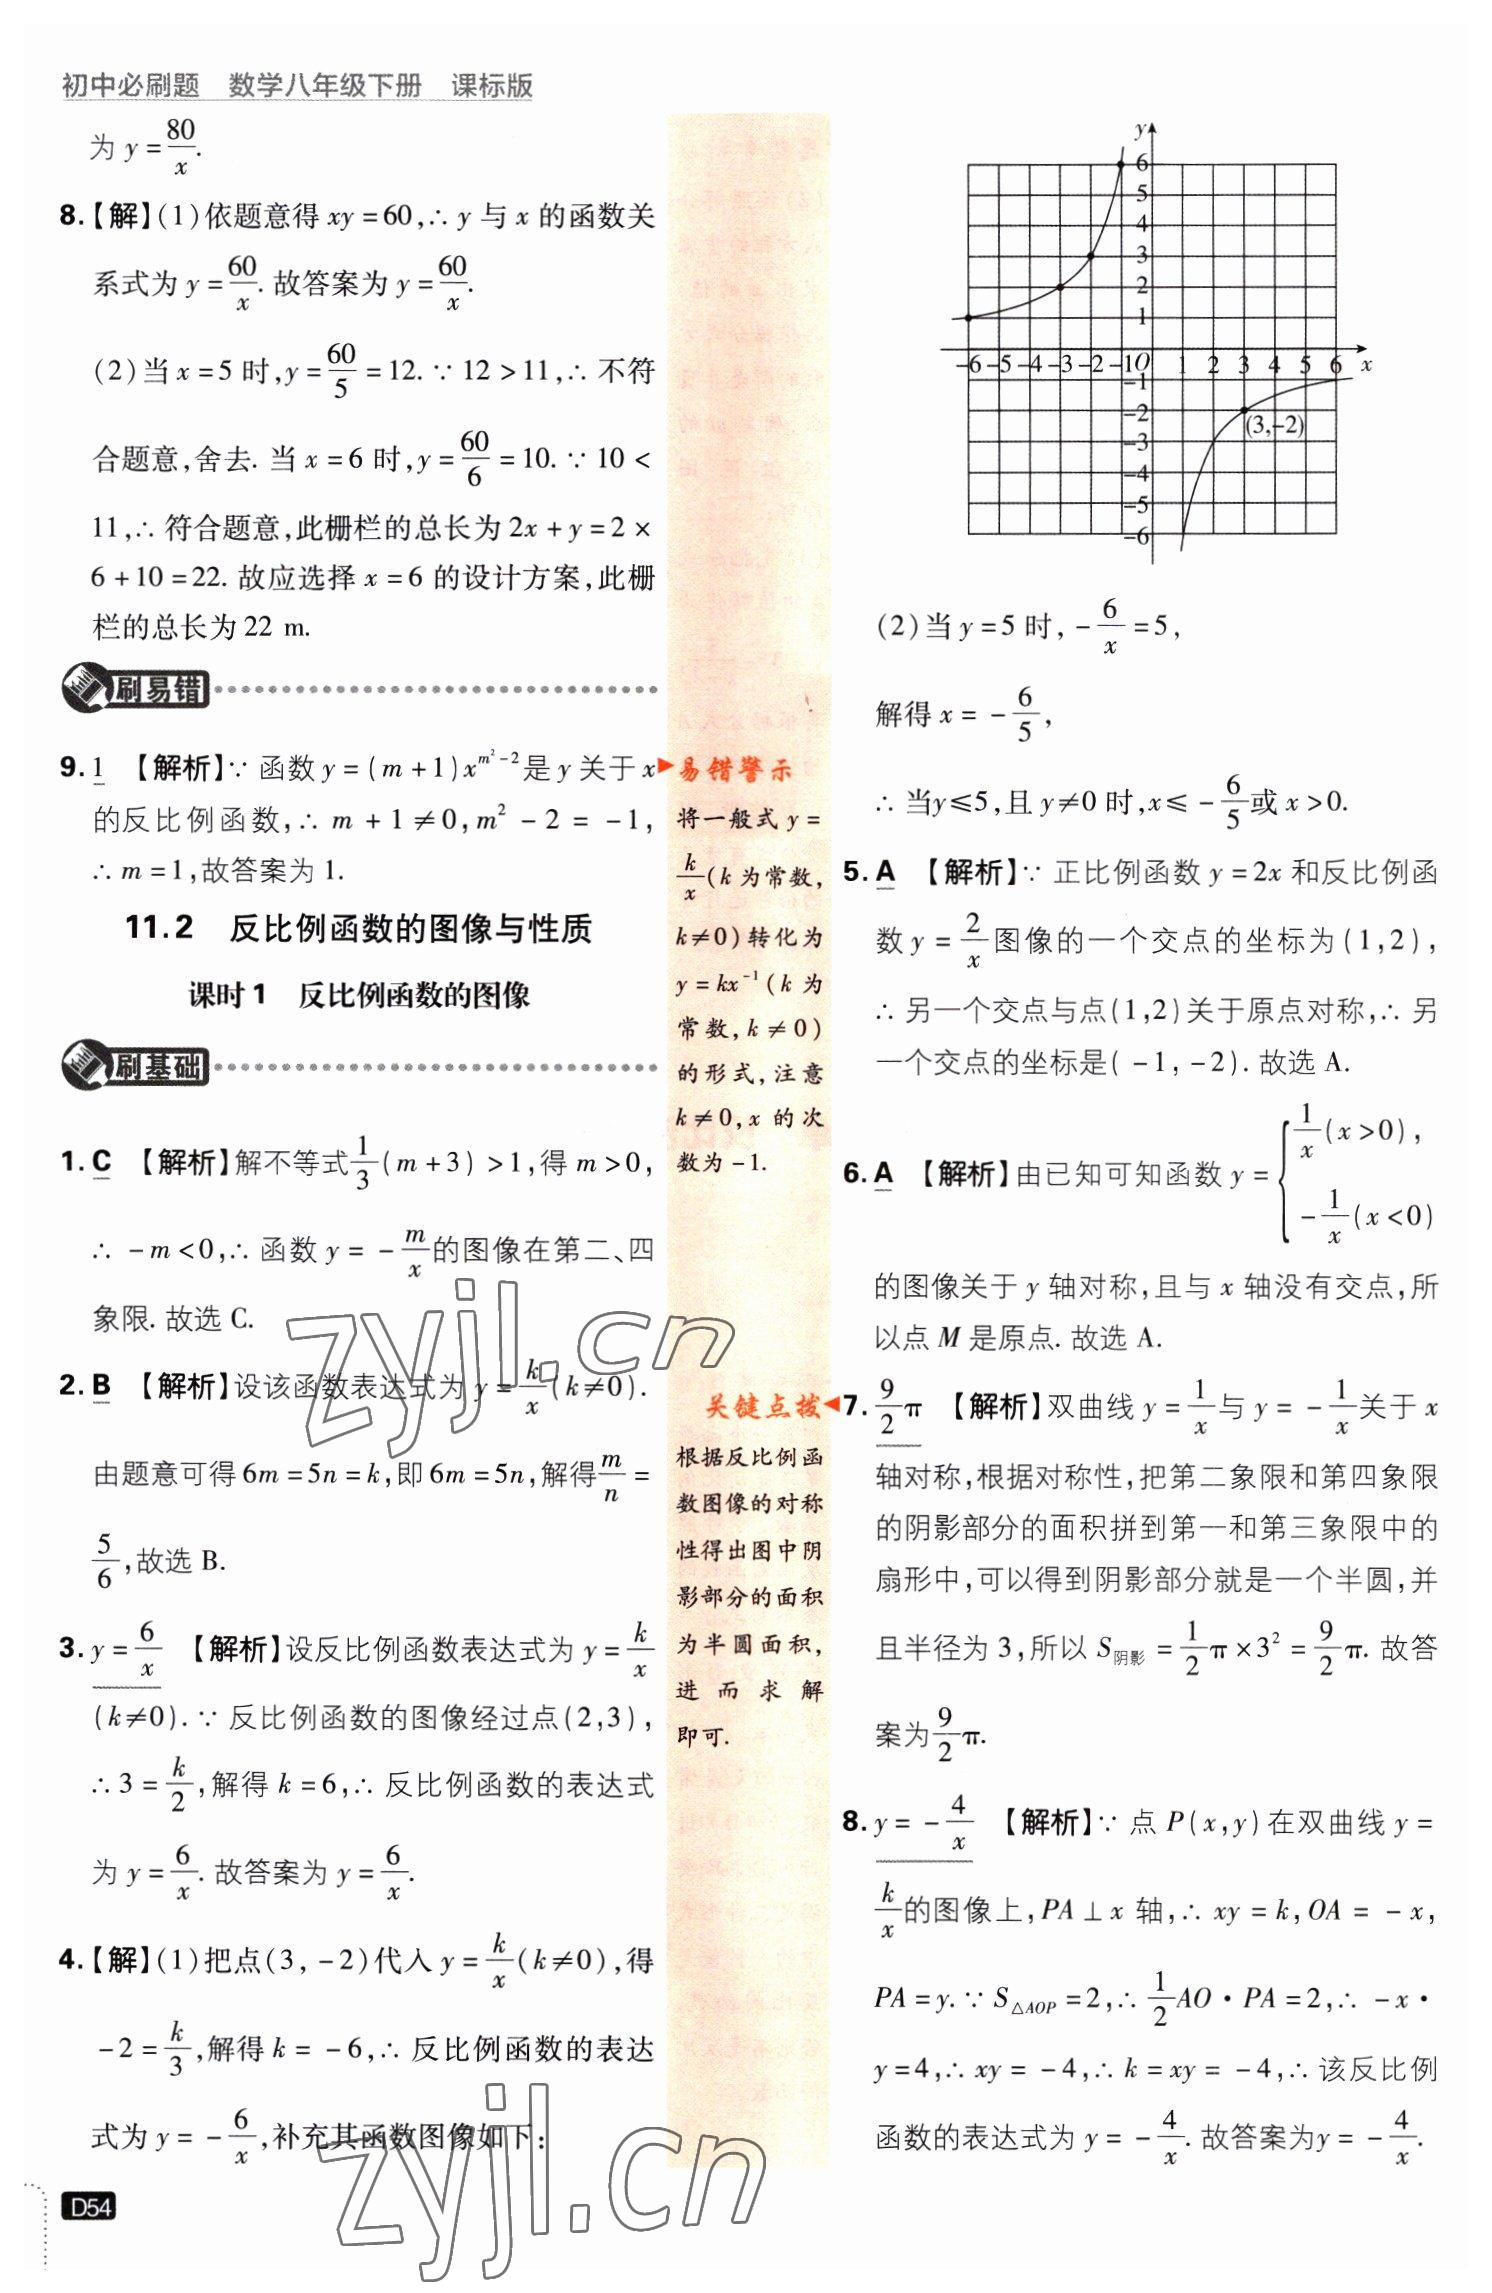 初中必刷题 数学八年级下册 课标版
为 y=80/x.
8.【解】(1)依题意得 xy=60,∴ y 与 x 的函数关
系式为 y=60/x. 故答案为 y=60/x.
(2)当 x=5 时,y=60/5=12. ∵ 12>11,∴ 不符
合题意,舍去. 当 x=6 时,y=60/6=10. ∵ 10<
11,∴ 符合题意,此栅栏的总长为 2x+y=2×
6+10=22. 故应选择 x=6 的设计方案,此栅
栏的总长为 22 m.
刷易错
9. 1 【解析】∵ 函数 y=(m+1)x^(m²-2) 是 y 关于 x
的反比例函数,∴ m+1≠0,m²-2=-1,
∴ m=1,故答案为 1.
11.2 反比例函数的图像与性质
课时1 反比例函数的图像
刷基础
1. C 【解析】解不等式 1/3(m+3)>1,得 m>0,
∴ -m<0,∴ 函数 y=-m/x 的图像在第二、四
象限. 故选 C.
2. B 【解析】设该函数表达式为 y=k/x(k≠0).
由题意可得 6m=5n=k,即 6m=5n,解得 m/n=
5/6,故选 B.
3. y=6/x 【解析】设反比例函数表达式为 y=k/x
(k≠0). ∵ 反比例函数的图像经过点(2,3),
∴ 3=k/2,解得 k=6,∴ 反比例函数的表达式
为 y=6/x. 故答案为 y=6/x.
4.【解】(1)把点(3,-2)代入 y=k/x(k≠0),得
-2=k/3,解得 k=-6,∴ 反比例函数的表达
式为 y=-6/x,补充其函数图像如下:
D54
易错警示
将一般式 y=
k/x(k 为常数,
k≠0)转化为
y=kx⁻¹(k 为
常数,k≠0)
的形式,注意
k≠0,x 的次
数为-1.
关键点拨
根据反比例函
数图像的对称
性得出图中阴
影部分的面积
为半圆面积,
进而求解
即可.
y
6
5
4
3
2
1
-6 -5 -4 -3 -2 -1 O 1 2 3 4 5 6 x
-1
-2
(3,-2)
-3
-4
-5
-6
(2)当 y=5 时,-6/x=5,
解得 x=-6/5,
∴ 当y≤5,且 y≠0 时,x≤-6/5 或 x>0.
5. A 【解析】∵ 正比例函数 y=2x 和反比例函
数 y=2/x 图像的一个交点的坐标为(1,2),
∴ 另一个交点与点(1,2)关于原点对称,∴ 另
一个交点的坐标是(-1,-2). 故选 A.
6. A 【解析】由已知可知函数 y={1/x(x>0),
-1/x(x<0)
的图像关于 y 轴对称,且与 x 轴没有交点,所
以点 M 是原点. 故选 A.
7. 9/2π 【解析】双曲线 y=1/x 与 y=-1/x 关于 x
轴对称,根据对称性,把第二象限和第四象限
的阴影部分的面积拼到第一和第三象限中的
扇形中,可以得到阴影部分就是一个半圆,并
且半径为 3,所以 S阴影=1/2π×3²=9/2π. 故答
案为 9/2π.
8. y=-4/x 【解析】∵ 点 P(x,y)在双曲线 y=
k/x 的图像上,PA⊥x 轴,∴ xy=k,OA=-x,
PA=y. ∵ S△AOP=2,∴ 1/2AO·PA=2,∴ -x·
y=4,∴ xy=-4,∴ k=xy=-4,∴ 该反比例
函数的表达式为 y=-4/x. 故答案为y=-4/x.
zyjl.cn
zyjl.cn